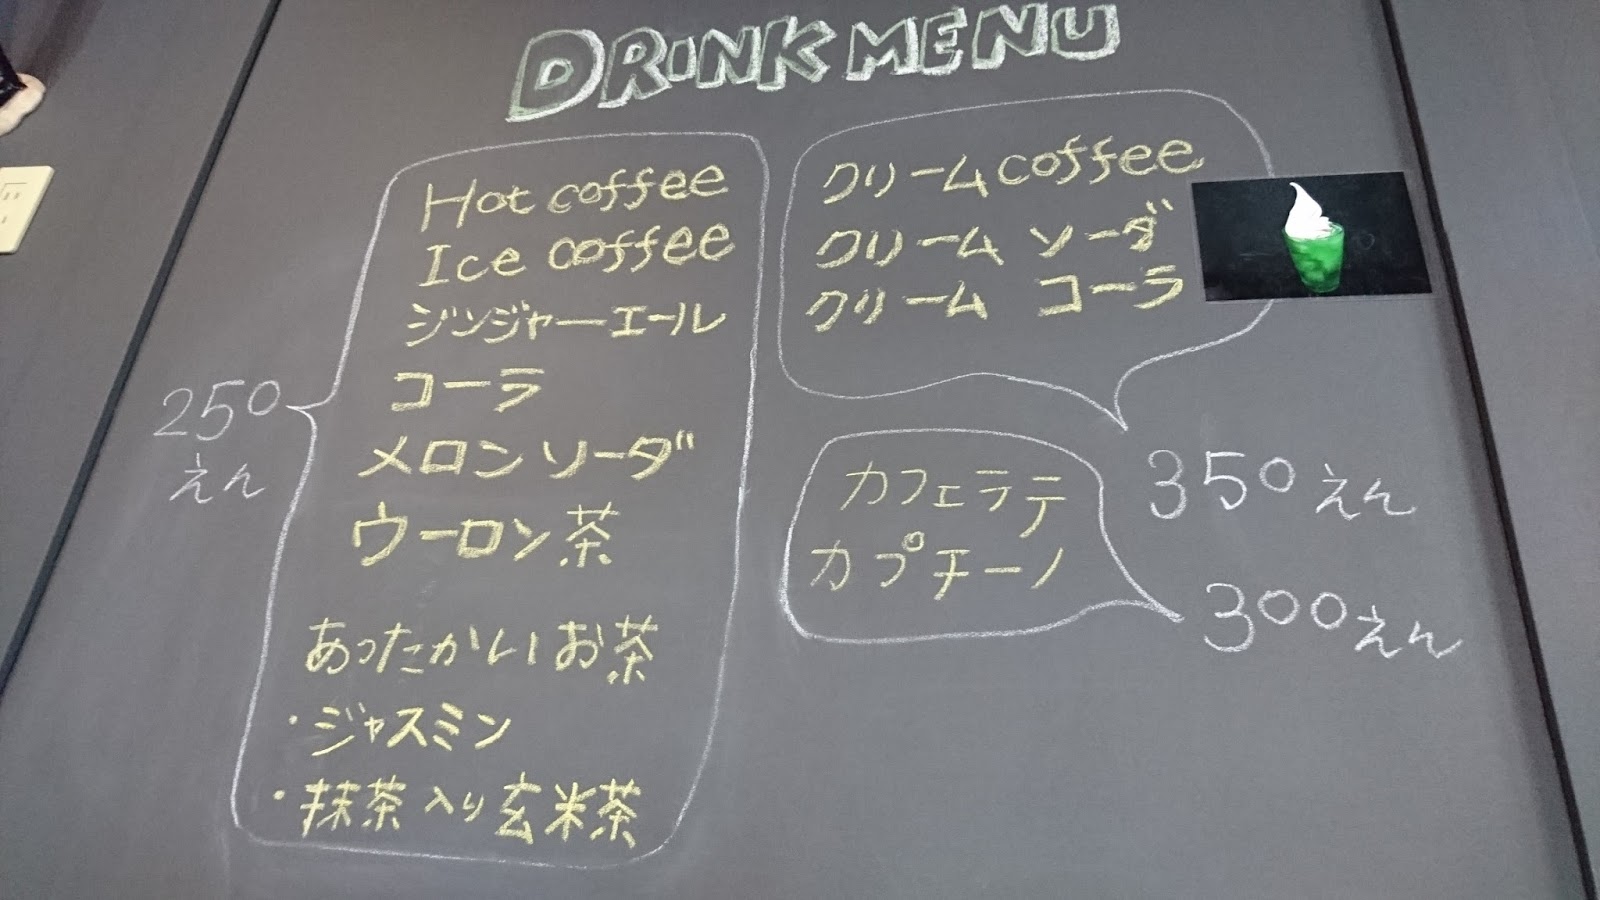 DRINK MENU
Hot coffee
Ice coffee
ジンジャーエール
コーラ
メロンソーダ
ウーロン茶
あったかいお茶
・ジャスミン
・抹茶入り玄米茶
250
えん
クリームcoffee
クリーム ソーダ
クリーム コーラ
350えん
カフェテテ
カプチーノ
300えん